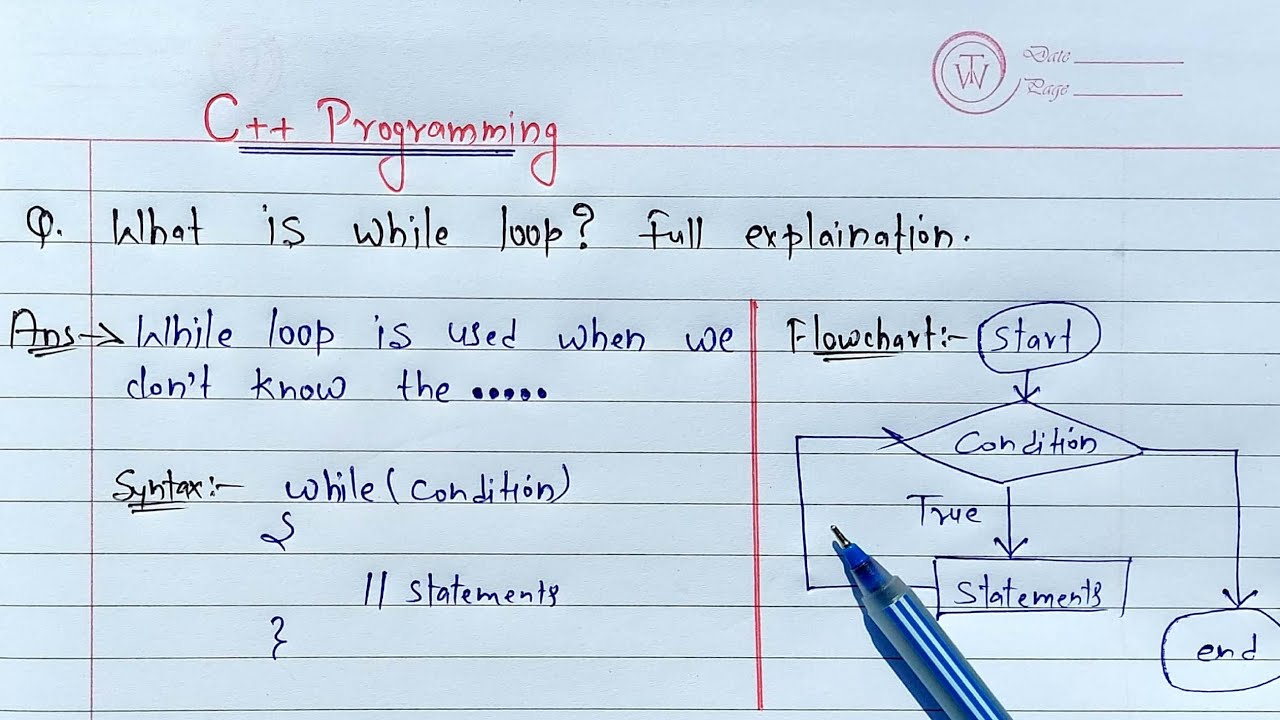 TW
Date
Page
C++ Programming
Q. What is while loop? Full explaination.
Ans→ While loop is used when we
don't know the •••••
Syntax:- while(condition)
{
// statements
}
Flowchart:- start
condition
True
statements
end